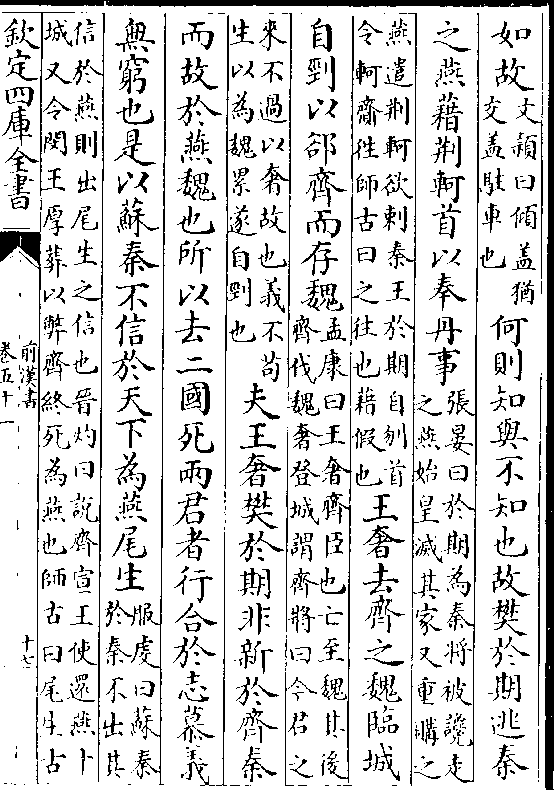 如故文頴曰傾盖猶交盖駐車也何則知與不知也故樊於期逃秦
之燕藉荆軻首以奉丹事張晏曰於期為秦將被讒走之燕始皇滅其家又重購之
燕遣荆軻欲刺秦王於期自刎首令軻齎徃師古曰之往也藉假也王奢去齊之魏臨城
自剄以郤齊而存魏孟康曰王奢齊臣也亡至魏其後齊伐魏奢登城謂齊將曰今君之
來不過以奢故也義不苟生以為魏累遂自剄也夫王奢樊於期非新於齊秦
而故於燕魏也所以去二國死兩君者行合於志慕義
無窮也是以蘇秦不信於天下為燕尾生服虔曰蘇秦於秦不出其
信於燕則出尾生之信也晋灼曰說齊宣王使還燕十城又令閔王厚葬以弊齊終死為燕也師古曰尾生古
欽定四庫全書
前漢書
卷五十一
十七